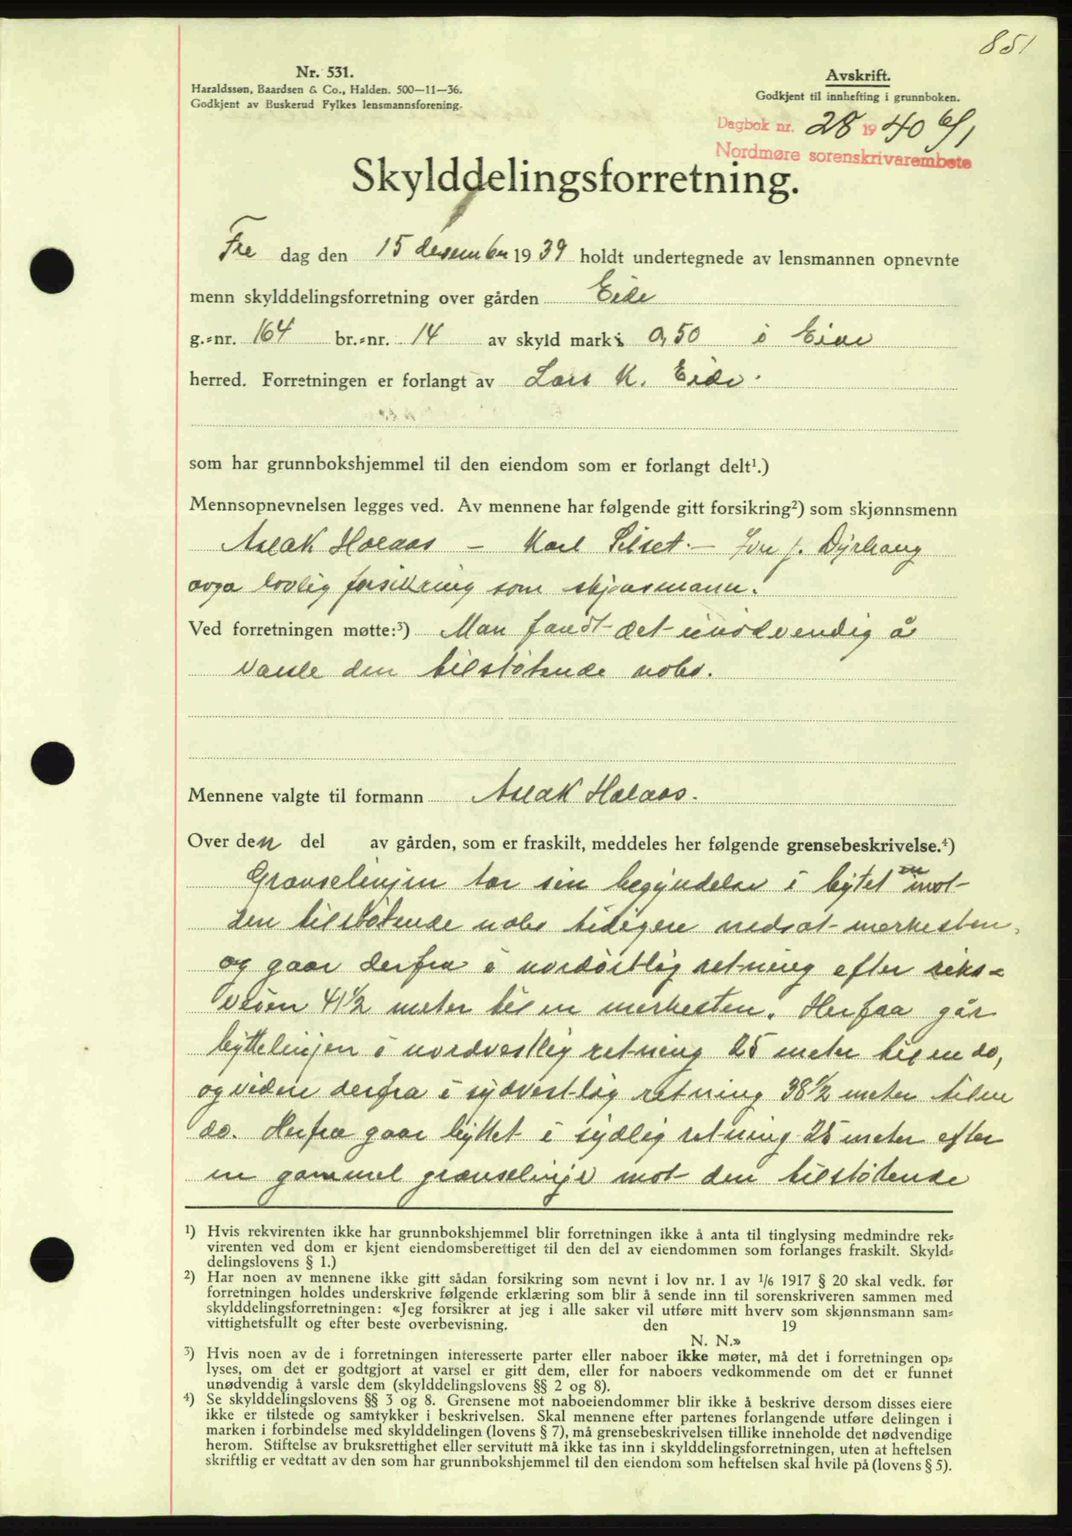 851
Nr. 531.
Haraldssøn, Baardsen & Co., Halden. 500—11—36.
Godkjent av Buskerud Fylkes lensmannsforening.
Avskrift.
Godkjent til innhefting i grunnboken.
Dagbok nr. 28 1940 6/1
Nordmøre sorenskrivarembete
Skylddelingsforretning.
Fre dag den 15 desember 1939 holdt undertegnede av lensmannen opnevnte
menn skylddelingsforretning over gården Eide
g.=nr. 164 br.=nr. 14 av skyld mark 0,50 i Eide
herred. Forretningen er forlangt av Lars K. Eide.
som har grunnbokshjemmel til den eiendom som er forlangt delt¹.)
Mennsopnevnelsen legges ved. Av mennene har følgende gitt forsikring²) som skjønnsmenn
Aslak Holaas — Karl Silset. — Iver J. Dyrhaug
avga lovlig forsikring som skjønsmann.
Ved forretningen møtte:³) Man fandt det unødvendig å
varsle den tilstøtende nabo.
Mennene valgte til formann Aslak Holaas.
Over den del av gården, som er fraskilt, meddeles her følgende grensebeskrivelse.⁴)
Grænselinjen tar sin begyndelse i bytet en mot
den tilstøtende nabo tidigere nedsat merkesten,
og gaar derfra i nordøstlig retning efter riks=
veien 41½ meter til en merkesten. Herfra går
byttelinjen i nordvestlig retning 25 meter til en do,
og videre derfra i sydvestlig retning 38½ meter til en
do. Herfra gaar byttet i sydlig retning 25 meter efter
en gammel grænselinje mot den tilstøtende
¹) Hvis rekvirenten ikke har grunnbokshjemmel blir forretningen ikke å anta til tinglysing medmindre rek=
virenten ved dom er kjent eiendomsberettiget til den del av eiendommen som forlanges fraskilt. Skyld=
delingslovens § 1.)
²) Har noen av mennene ikke gitt sådan forsikring som nevnt i lov nr. 1 av 1/6 1917 § 20 skal vedk. før
forretningen holdes underskrive følgende erklæring som blir å sende inn til sorenskriveren sammen med
skylddelingsforretningen: «Jeg forsikrer at jeg i alle saker vil utføre mitt hverv som skjønnsmann sam=
vittighetsfullt og efter beste overbevisning. den 19
N. N.»
³) Hvis noen av de i forretningen interesserte parter eller naboer ikke møter, må det i forretningen op=
lyses, om det er godtgjort at varsel er gitt dem, eller for naboers vedkommende om det er funnet
unødvendig å varsle dem (skylddelingslovens §§ 2 og 8).
⁴) Se skylddelingslovens §§ 3 og 8. Grensene mot naboeiendommer blir ikke å beskrive dersom disses eiere
ikke er tilstede og samtykker i beskrivelsen. Skal mennene efter partenes forlangende utføre delingen i
marken i forbindelse med skylddelingen (lovens § 7), må grensebeskrivelsen tillike inneholde det nødvendige
herom. Stiftelse av bruksrettighet eller servitutt må ikke tas inn i skylddelingsforretningen, uten at heftelsen
skriftlig er vedtatt av den som har grunnbokshjemmel til den eiendom som heftelsen skal hvile på (lovens § 5).